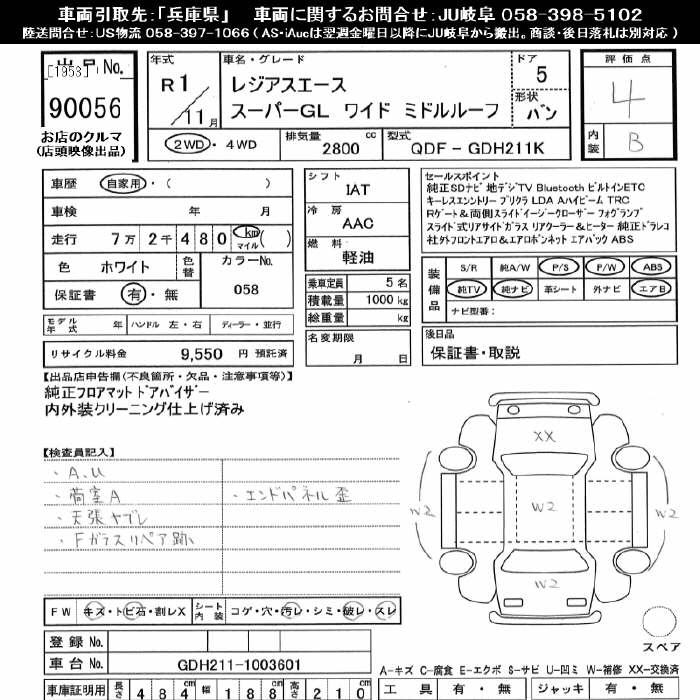 車両引取先:「兵庫県」　車両に関するお問合せ:JU岐阜 058-398-5102
陸送問合せ:US物流 058-397-1066 ( AS・iAucは翌週金曜日以降にJU岐阜から搬出。商談・後日落札は別対応 )
出品 No.
[1953]
90056
お店のクルマ
(店頭映像出品)
年式
R1/11月
車名・グレード
レジアスエース
スーパーGL ワイド ミドルルーフ
ドア
5
形状
バン
評価点
4
内装
B
2WD・4WD
排気量
2800 cc
型式
QDF - GDH211K
車歴 自家用・( )
車検 年 月
走行 7万2千480 km マイル( )
色 ホワイト 色替
カラーNo.
058
保証書 有・無
シフト
IAT
冷房
AAC
燃料
軽油
乗車定員 5名
積載量 1000 kg
総重量 kg
名変期限
月 日
セールスポイント
純正SDナビ 地デジTV Bluetooth ビルトインETC
キーレスエントリー プリクラ LDA Aハイビーム TRC
Rゲート&両側スライドイージークローザー フォグランプ
スライド式リアサイドガラス リアクーラー&ヒーター 純正ドラレコ
社外フロントエアロ&エアロボンネット エアバック ABS
装備品
S/R 純A/W P/S P/W ABS
純TV 純ナビ 革シート 外ナビ エアB
ナビ型番:
モデル年式 年 ハンドル 左・右 ディーラー・並行
リサイクル料金 9,550 円 預託済
後日品
保証書・取説
【出品店申告欄(不良箇所・欠品・注意事項等)】
純正フロアマット ドアバイザー
内外装クリーニング仕上げ済み
【検査員記入】
・A.U
・荷室A
・エンドパネル歪
・天張ヤブレ
・Fガラスリペア跡
XX
W2
W2
W2
W2
スペア
FW キズ・トビ石・割レX
シート内装 コゲ・穴・汚レ・シミ・破レ・スレ
登録 No.
車台 No. GDH211-1003601
A-キズ C-腐食 E-エクボ S-サビ U-凹ミ W-補修 XX-交換済
車庫証明用 長さ 484 cm 幅 188 cm 高さ 210 cm
工具 有・無 ジャッキ 有・無